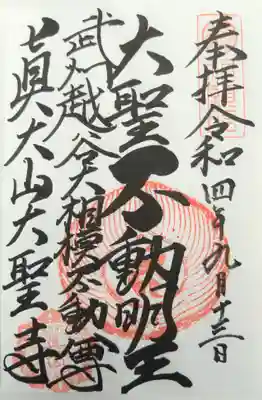 奉拝令和四年九月十三日
大聖不動明王
武州越谷大相模不動尊
眞大山大聖寺